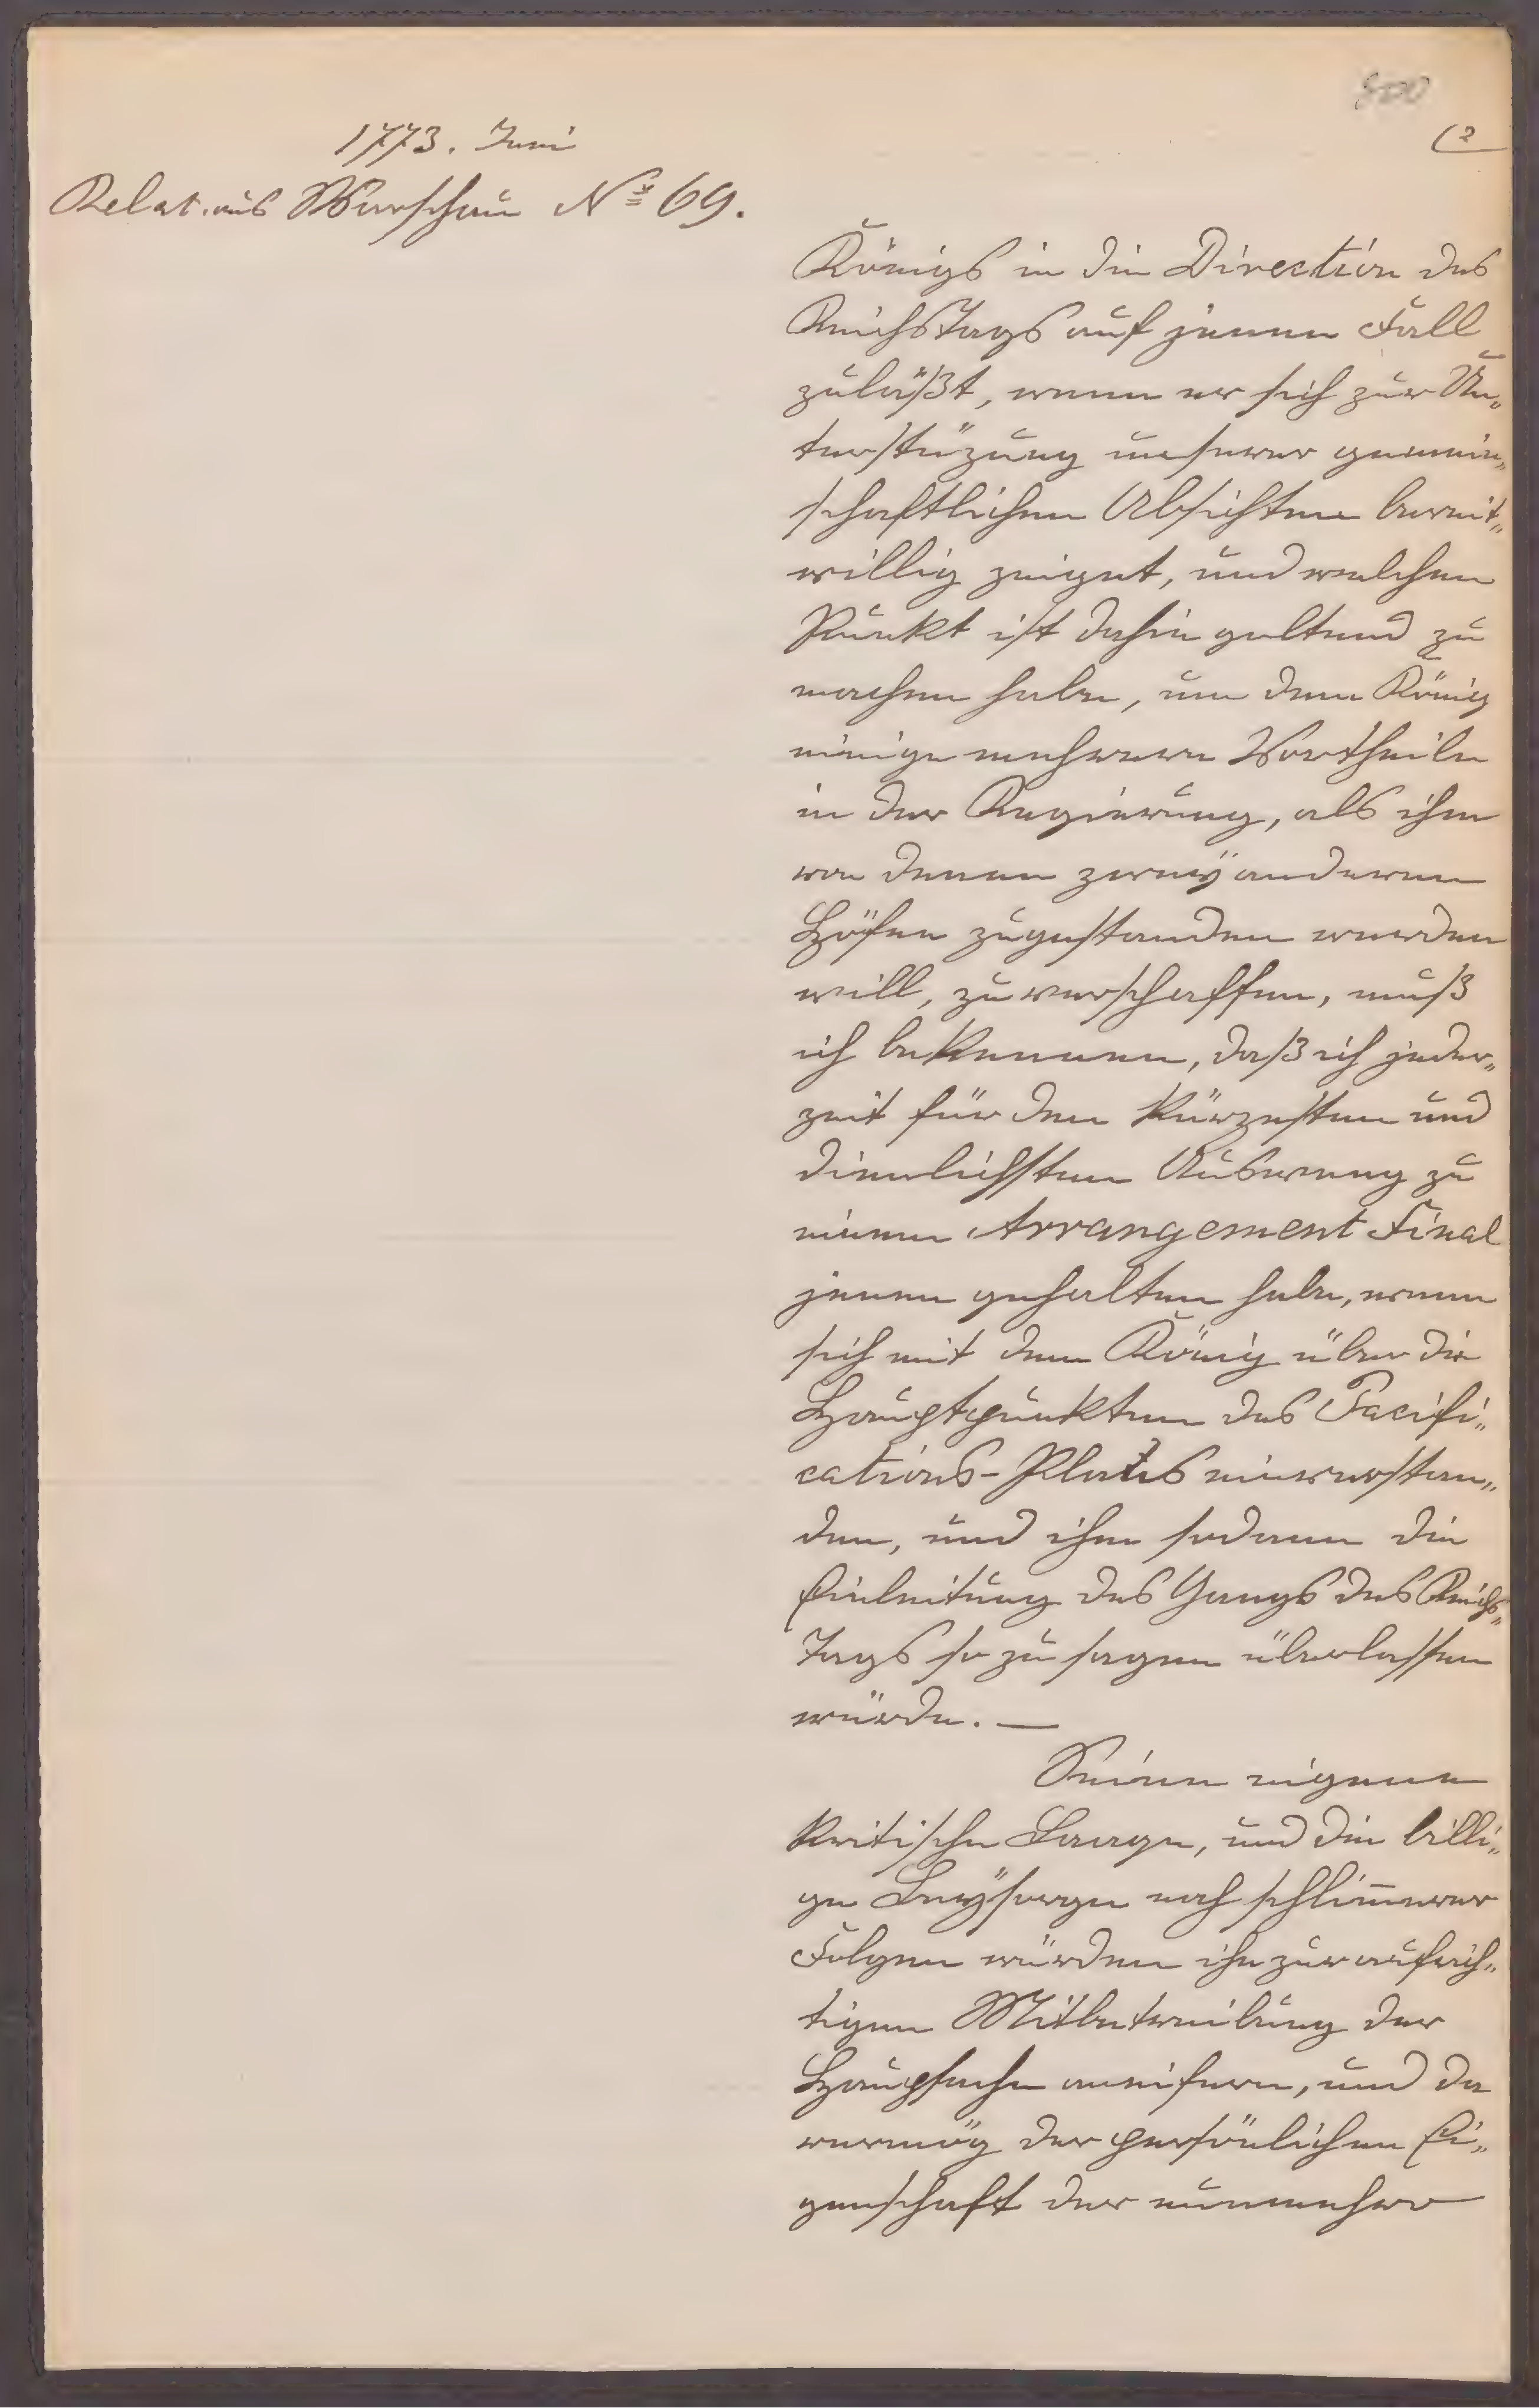 500
(2
1773. Juni
Relat. aus Warschau No 69.
Königs in die Direction des
Reichstags auf jenen Fall
zuläßt, wenn er sich zur Un„
terstüzung unserer gemein„
schaftlichen Absichten bereit„
willig zeiget, und welchen
Punkt ist dahin geltend zu
machen habe, um dem König
einige mehrere Vortheile
in der Regierung, als ihm
von denen zweÿ anderen
Höfen zugestanden werden
will, zu verschaffen, muß
ich bekennen, daß ich jeder„
zeit für den kürzesten und
dienlichsten Ausweeg zu
einem Arrangement Final
jenen gehalten habe, wenn
sich mit dem König über die
Hauptpunkten des Pacifi„
cations-Plans einverstan„
den, und ihm sodann die
Einleitung des Gangs des Reichs„
tags so zu sagen überlassen
würde. —
Seine eigene
kritische Laage, und die billi„
ge Beÿsorge noch schlim̄erer
Folgen würden ihn zur aufrich„
tigen Mitbetreibung der
Haupsache aneifern, und da
vermög der persönlichen Ei„
genschaft der nunmehro